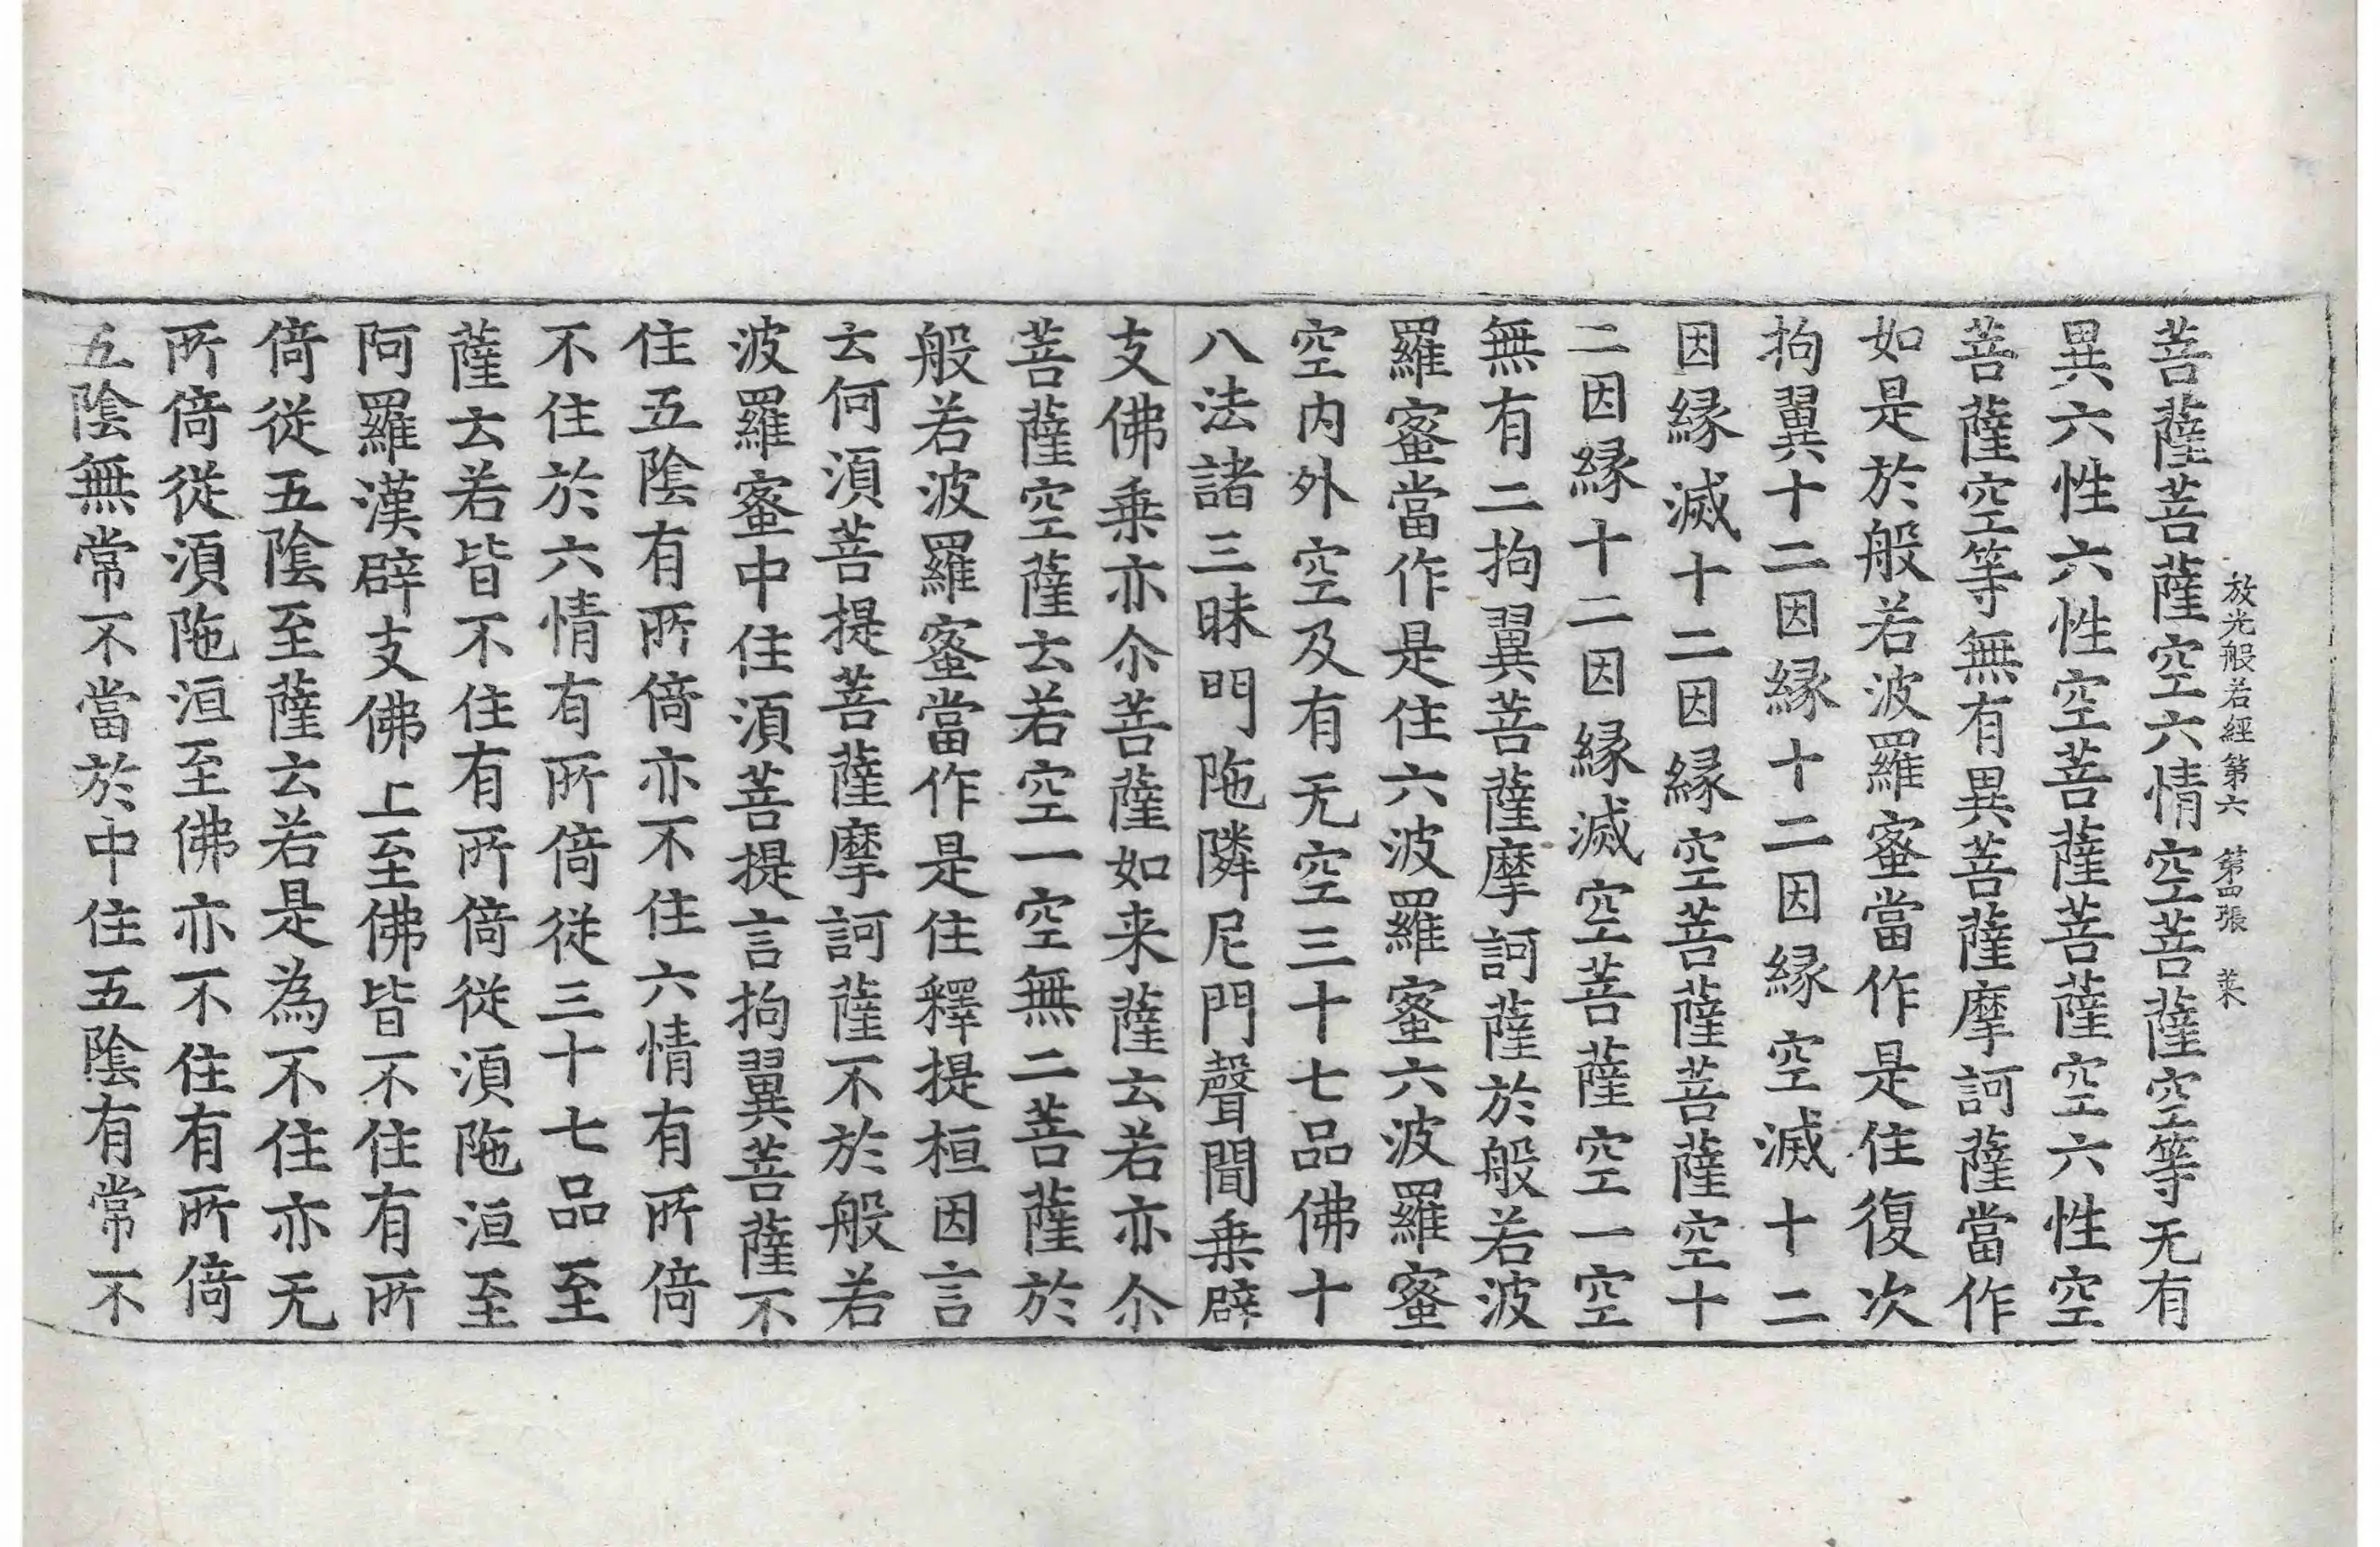 放光般若經第六 第四張 菜
菩薩菩薩空六情空菩薩空等无有
異六性六性空菩薩菩薩空六性空
菩薩空等無有異菩薩摩訶薩當作
如是於般若波羅蜜當作是住復次
拘翼十二因縁十二因縁空滅十二
因縁滅十二因縁空菩薩菩薩空十
二因縁十二因縁滅空菩薩空一空
無有二拘翼菩薩摩訶薩於般若波
羅蜜當作是住六波羅蜜六波羅蜜
空内外空及有无空三十七品佛十
八法諸三昧門陁隣尼門聲聞乗辟
支佛乗亦尒菩薩如来薩云若亦尒
菩薩空薩云若空一空無二菩薩於
般若波羅蜜當作是住釋提桓因言
云何須菩提菩薩摩訶薩不於般若
波羅蜜中住須菩提言拘翼菩薩不
住五陰有所倚亦不住六情有所倚
不住於六情有所倚從三十七品至
薩云若皆不住有所倚從須陁洹至
阿羅漢辟支佛上至佛皆不住有所
倚從五陰至薩云若是為不住亦无
所倚從須陁洹至佛亦不住有所倚
五陰無常不當於中住五陰有常不